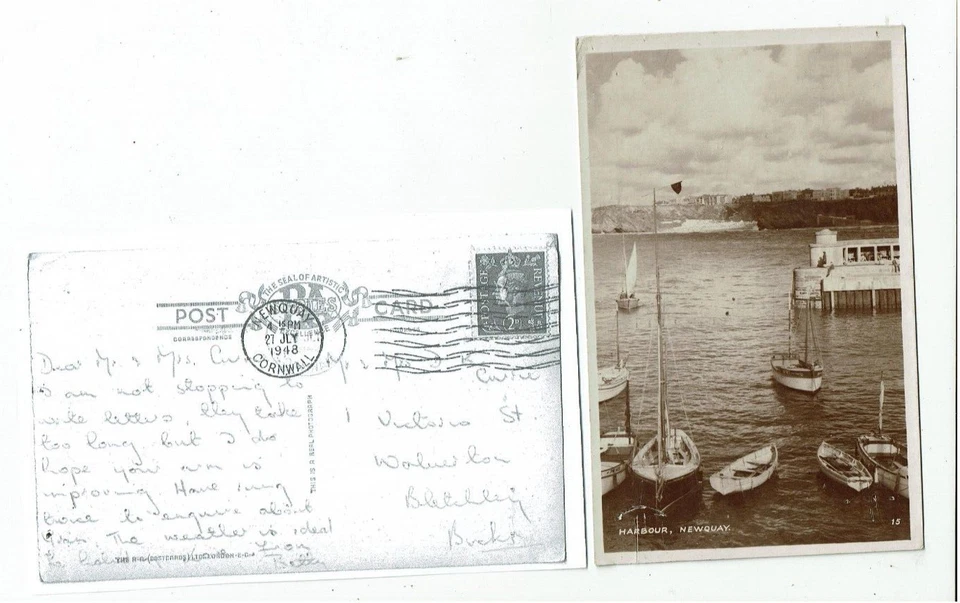 THE SEAL OF ARTISTIC
POST CARD
CORRESPONDENCE
NEWQUAY
15 PM
27 JLY
1948
CORNWALL
POSTAGE REVENUE
Dear Mr. & Mrs.
I am not stopping to
write letters, they take
too long, but I do
hope your arm is
improving. Have rung
twice to enquire about
you. The weather is ideal
Betty
Mr & Mrs
1 Victoria St
Wolverton
Bletchley
Bucks
THIS IS A REAL PHOTOGRAPH
HARBOUR, NEWQUAY.
15